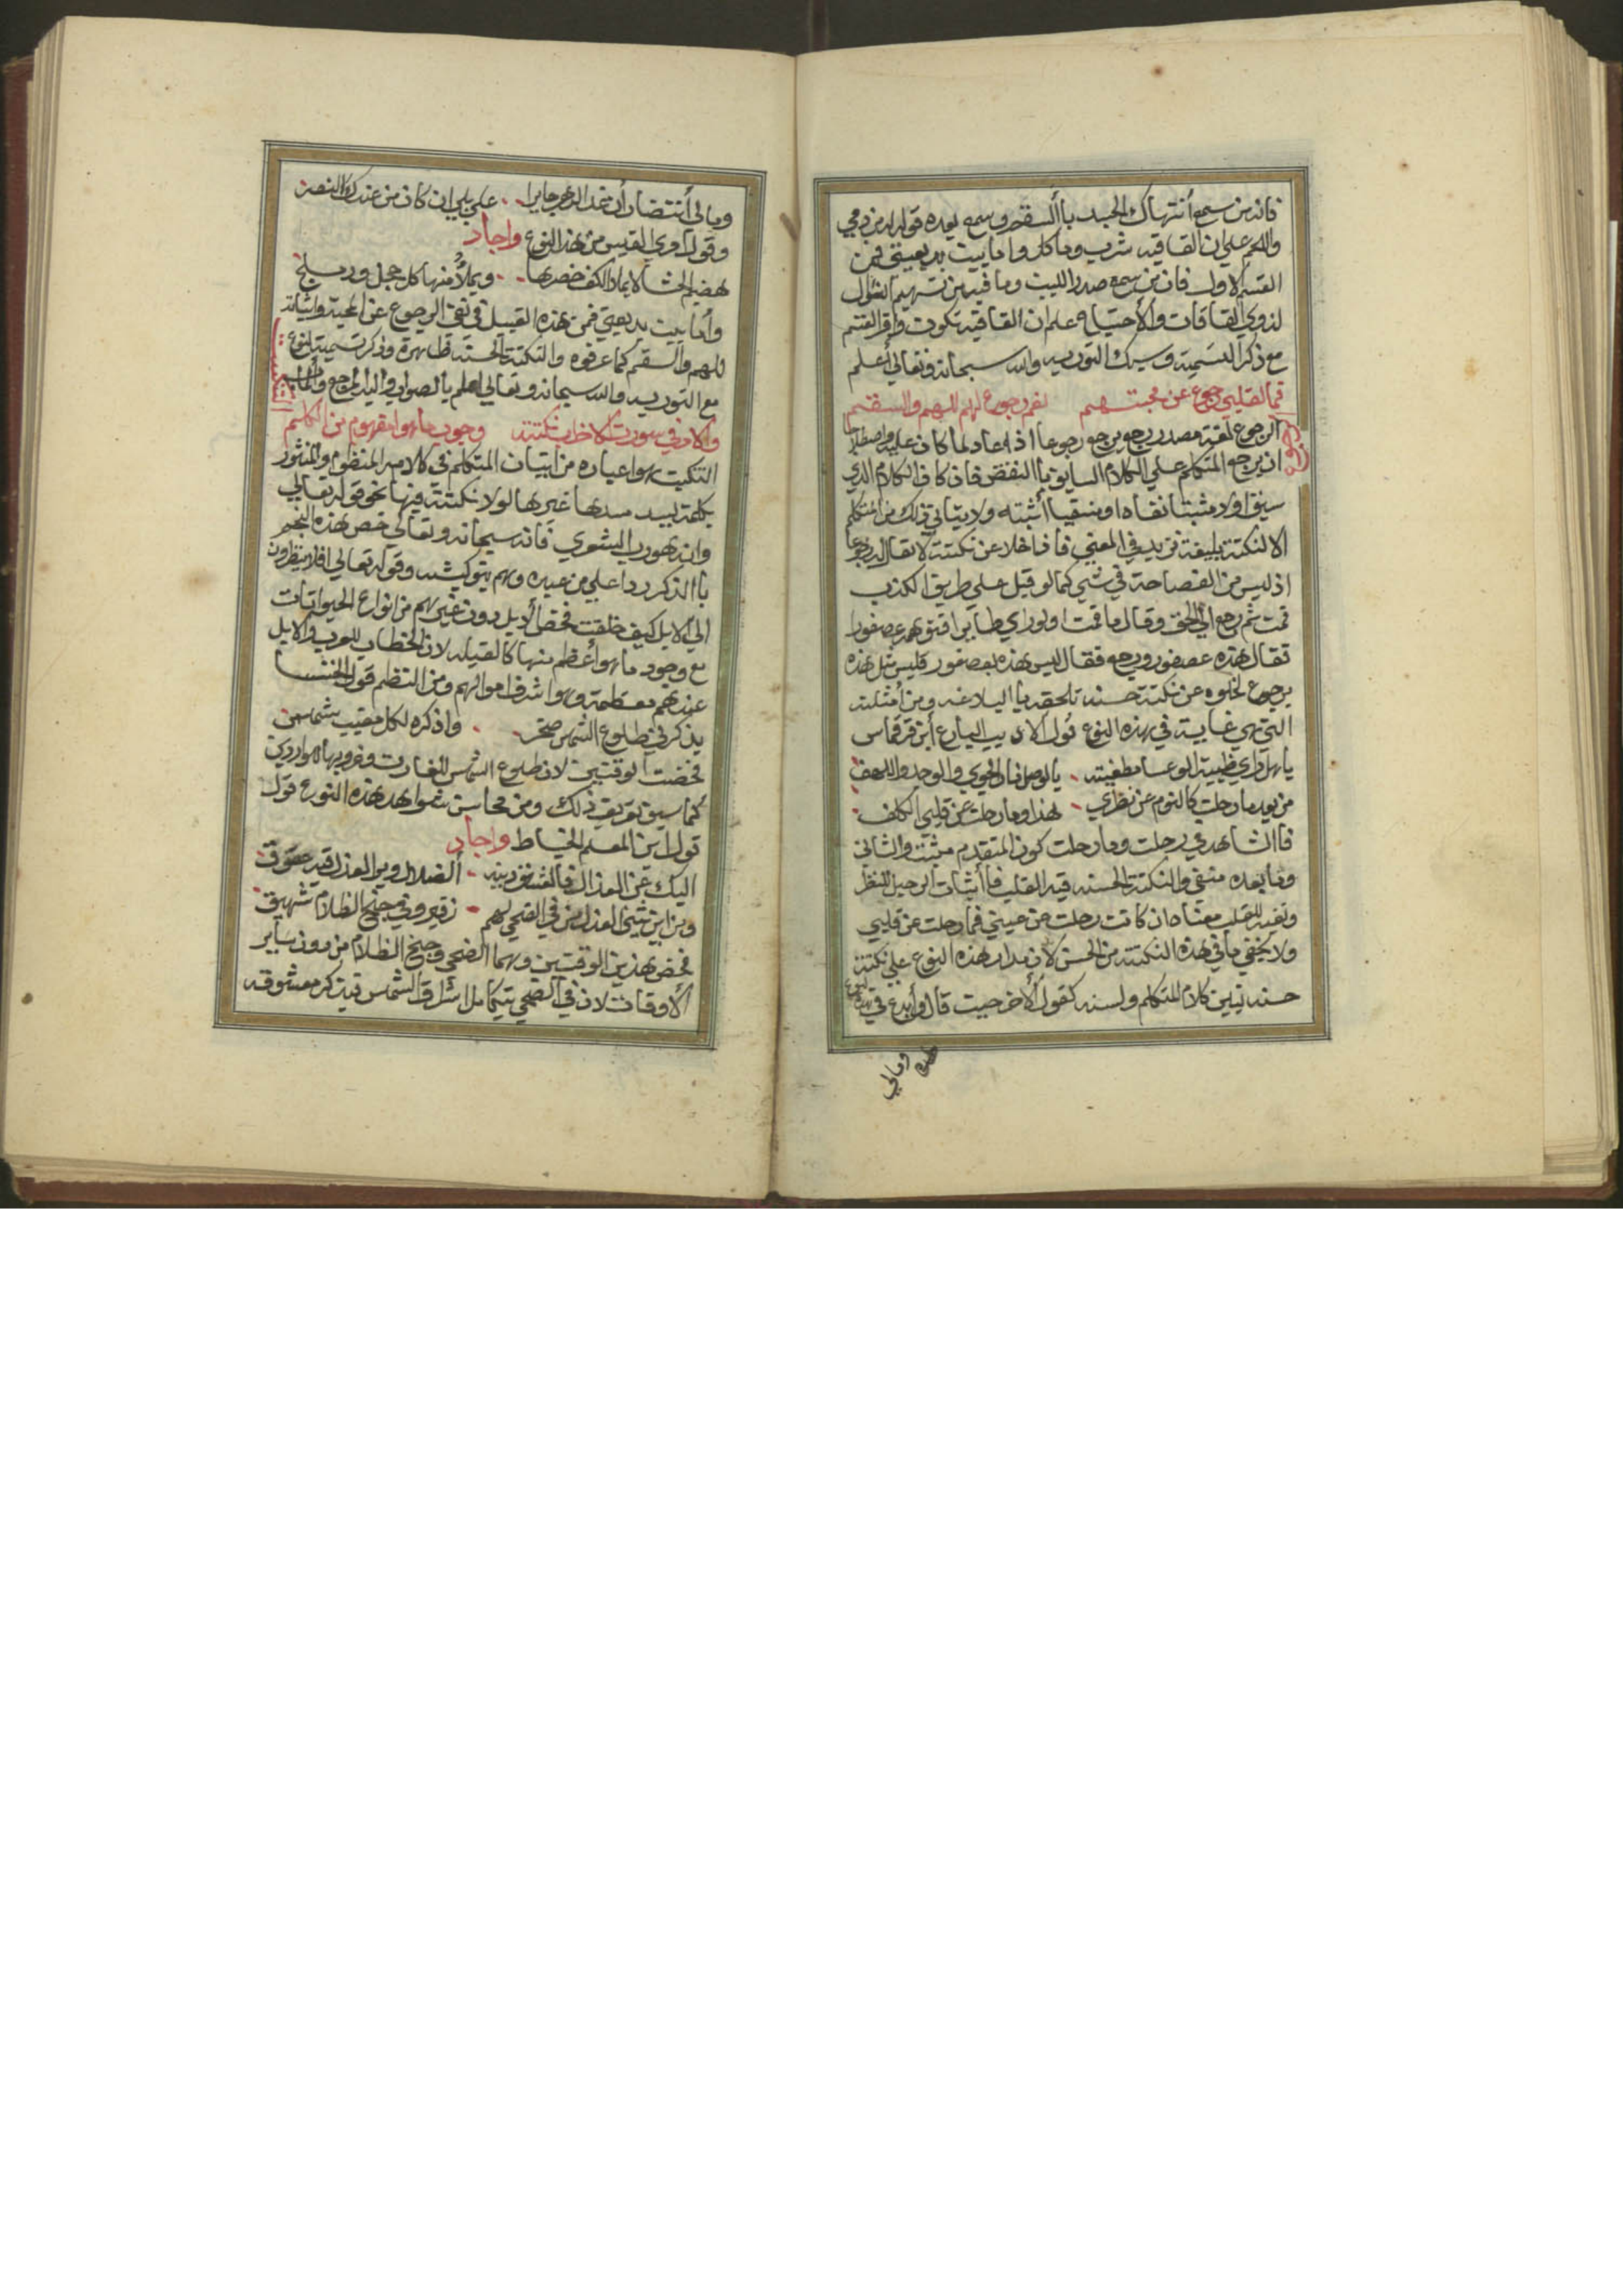 فانه من سمع أنتهاك الجسد باالسقم وسمع بعده قوله من دمي
واللحم علم ان القافيه شرب وماكل واما بيت بديعيتي فمن
القسم الاول فان من سمع صدر البيت وما فيه من تسهيم
لذوي القافات والأحتياه علم ان القافيه تكون
مع ذكر التسميه وسبك التوريه والله سبحانه وتعالي أعلم
فما لقلبي رجوع عن محبتهم نعم رجوع لهم للهم والسقم
الرجوع
الرجوع لغة مصدر رجع يرجع رجوعا اذا عاد لما كان عليه واصطلاحا
ان يرجع المتكلم علي الكلام السابق باالنقض فان كان الكلام الذي
سبق اولا مثبتا نفاه او منفيا أثبته ولا يتاتي ذلك من المتكلم
الا لنكتة بليغة تزيد في المعني فاذا خلا عن نكتة لا يقال له رجوعا
اذ ليس من الفصاحة في شي كما لو قيل علي طريق الكذب
قمت ثم رجع الي الحق وقال ما قمت اولو راي طاير
فقال هذه عصفور ورجع فقال ليس هذه بعصفور فليس مثل هذه
برجوع لخلوه عن نكتة حسنه تلحقه باالبلاغه ومن أمثلته
التي هي غاية في هذه النوع قول الاديب البارع أبن قرقماس
يا هل تري ظبية الوعسا مطفيته بالوصل نار الجوي والوجد واللهف
من بعد ما رحلت كالنوم عن نظري هذا وما رحلت عن قلبي الكلف
فاالشاهد في رحلت وما رحلت كون المتقدم مثبت والثاني
وما بعده منفي والنكتة الحسنه فيه القلب فاأثبات الرحيل للنظر
ونفيه للقلب معناه ان كانت رحلت عن عيني فما رحلت عن قلبي
ولا يخفي ما في هذه النكتة من الحسن لان مدار هذه النوع علي نكتة
حسنه تبين كلام المتكلم ولسنه كقول الأخر حيث قال وأبدع في هذه النوع
ومالي
ومالي أنتصار أن غدا الدهر جايرا علي بلي ان كان من عندك النصر
وقول أمري القيس من هذا النوع واجاد
هضيم الحشا لا يملا الكف خصرها ويملأ منها كل حجل ودملج
وأما بيت بديعيتي فمن هذه القبيل في نفي الرجوع عن المحبة واثباته
للهم والسقم كما عرفوه والنكتة الحسنه ظاهرة وذكر تسمية النوع
مع التوريه والله سبحانه وتعالي اعلم باالصواب واليه المرجع والمااب
التنكيت
وكاد في سورت الاحزاب نكتته وجوب ما هوا مفهوم من الكلم
التنكيت هوا عباره من اتيان المتكلم في كلامه المنظوم والمنثور
بكلمة يسد مسدها غيرها لولا نكتة فيها نحو قوله تعالي
وانه هو رب الشعري فانه سبحانه وتعالي خص هذه النجم
باالذكر ردا علي من عبده وهم وقوله تعالي افلا ينظرون
الي الابل كيف خلقت فخص دون غيرهم من انواع الحيوانات
مع وجود ما هوا أعظم منها كالفيله لان الخطاب للعرب والابل
عندهم معظمة وهوا شرف اموالهم ومن النظم قول الخنسا
يذكرني طلوع الشمس صخر واذكره لكل مغيب شمس
فخصت الوقتين لان طلوع الشمس للغارت وغروبها للواردين
كما سبق تعريف ذلك ومن محاسن شواهد هذه النوع قول
قول ابن المعلم الخياط واجاد
اليك عن العذال
ومن اين لهم زفير وفي جنح الظلام شهيق
فخص هذين الوقتين وهما الضحي وجنح الظلام من دون ساير
الأوقات لان في الضحي يتكامل اشراق الشمس فيذكر معشوقه